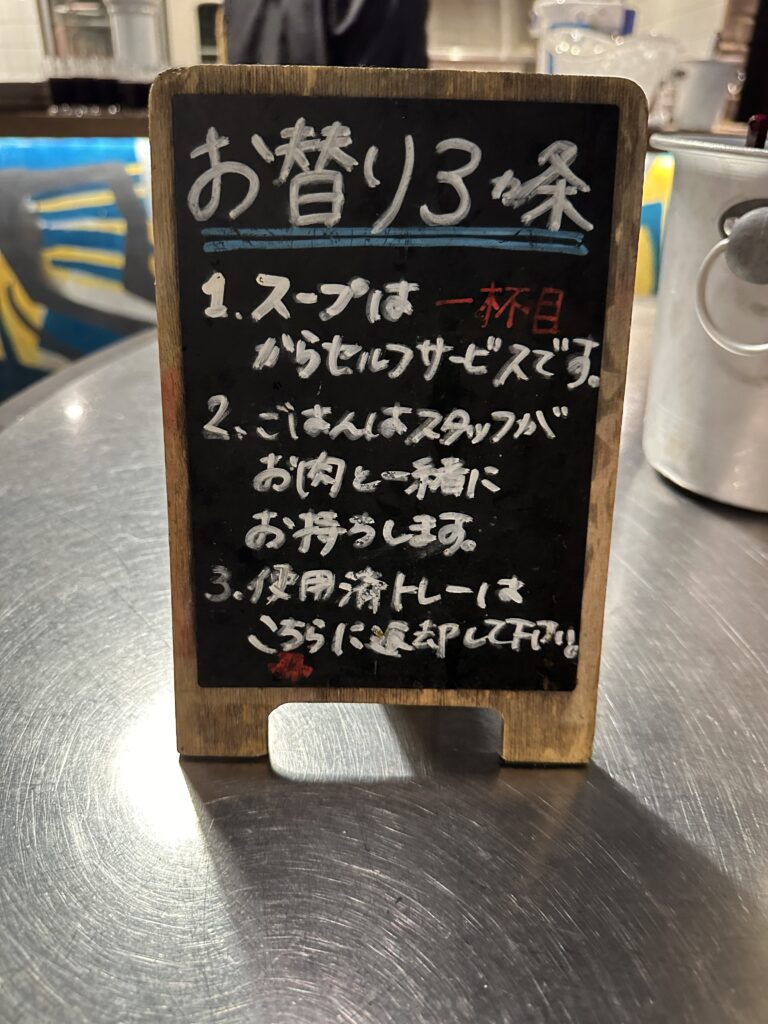 お替り3ヵ条
1. スープは 一杯目
からセルフサービスです。
2. ごはんはスタッフが
お肉と一緒に
お持ちします。
3. 使用済トレーは
こちらに返却して下さい。